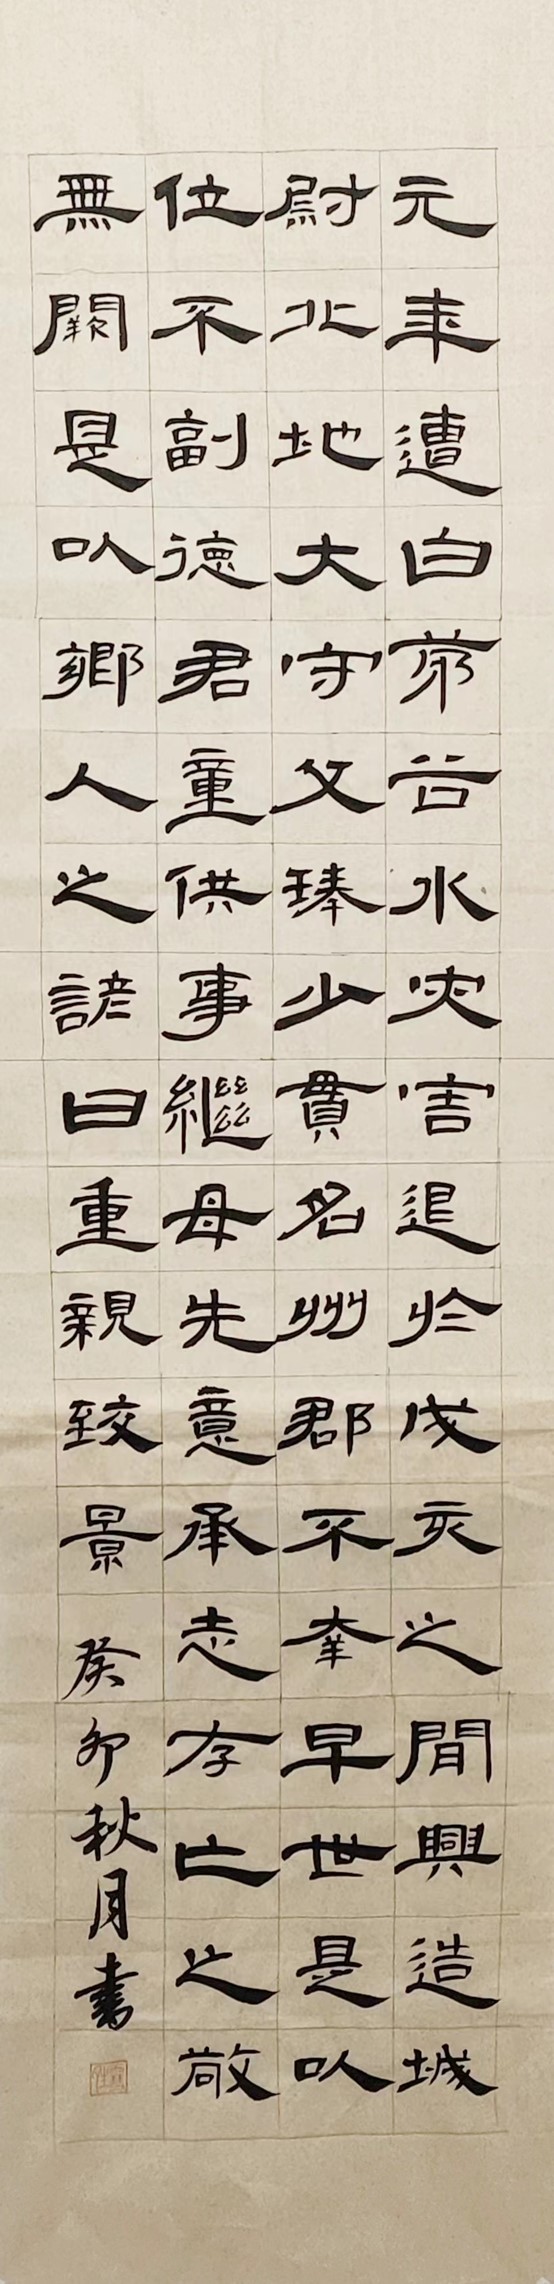 元年遭白茅谷水灾害退於戌亥之間興造城
尉北地大守父琫少貫名州郡不幸早世是以
位不副德君童供事繼母先意承志存亡之敬
無闕是以鄉人之諺曰重親致景
癸卯秋月書